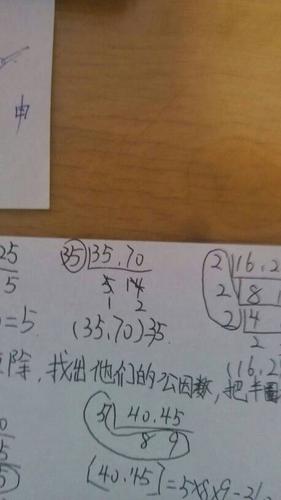 申
25
35 35.70 2 16.2
5 5 14 2 8 1
1 2 2 4
=5. (35.70)35 2
(16.2
除，找出他们的公因数，把半圈
5 40.45
8 9
5
[40.45]=5×8×9=